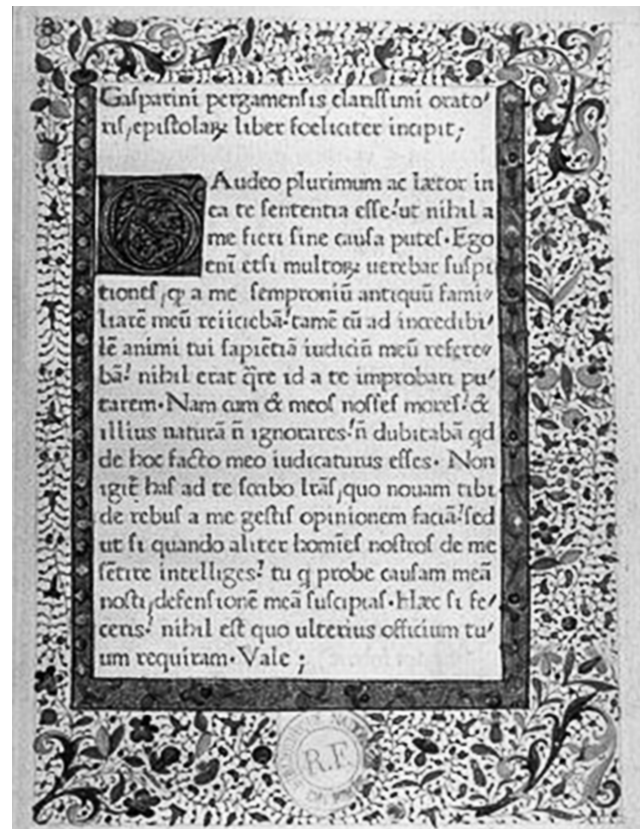 Gaſparini pergamenſis clariſſimi orato⸗
riſ,epiſtolaꝝ liber foeliciter incipit;
GAudeo plurimum ac lætor in
ea te ſententia eſſe.ut nihil a
me fieri ſine cauſa puteſ.Ego
enī etſi multoꝝ uerebar ſuſpi
tioneſ,ꝙ a me ſemproniū antiquū fami⸗
liarē meū reiiciebā.tamē cū ad incredibi⸗
lē animi tui ſapiētiā iudiciū meū refere⸗
bā. nihil erat q̄re id a te improbari pu⸗
tarem.Nam cum & meoſ noſſeſ moreſ.&
illius naturā n̄ ignorares.n̄ dubitabā qd
de hoc facto meo iudicaturus eſſes. Non
igit̄ haſ ad te ſcribo lr̄aſ,quo nouam tibi
de rebuſ a me geſtiſ opinionem faciā.ſed
ut ſi quando aliter homīeſ noſtroſ de me
ſētire intelliges. tu q probe cauſam meā
noſti,defenſionē meā ſuſcipiaſ.Hæc ſi fe⸗
ceris. nihil eſt quo ulterius officium tu⸗
um requiram.Vale;
R.F.